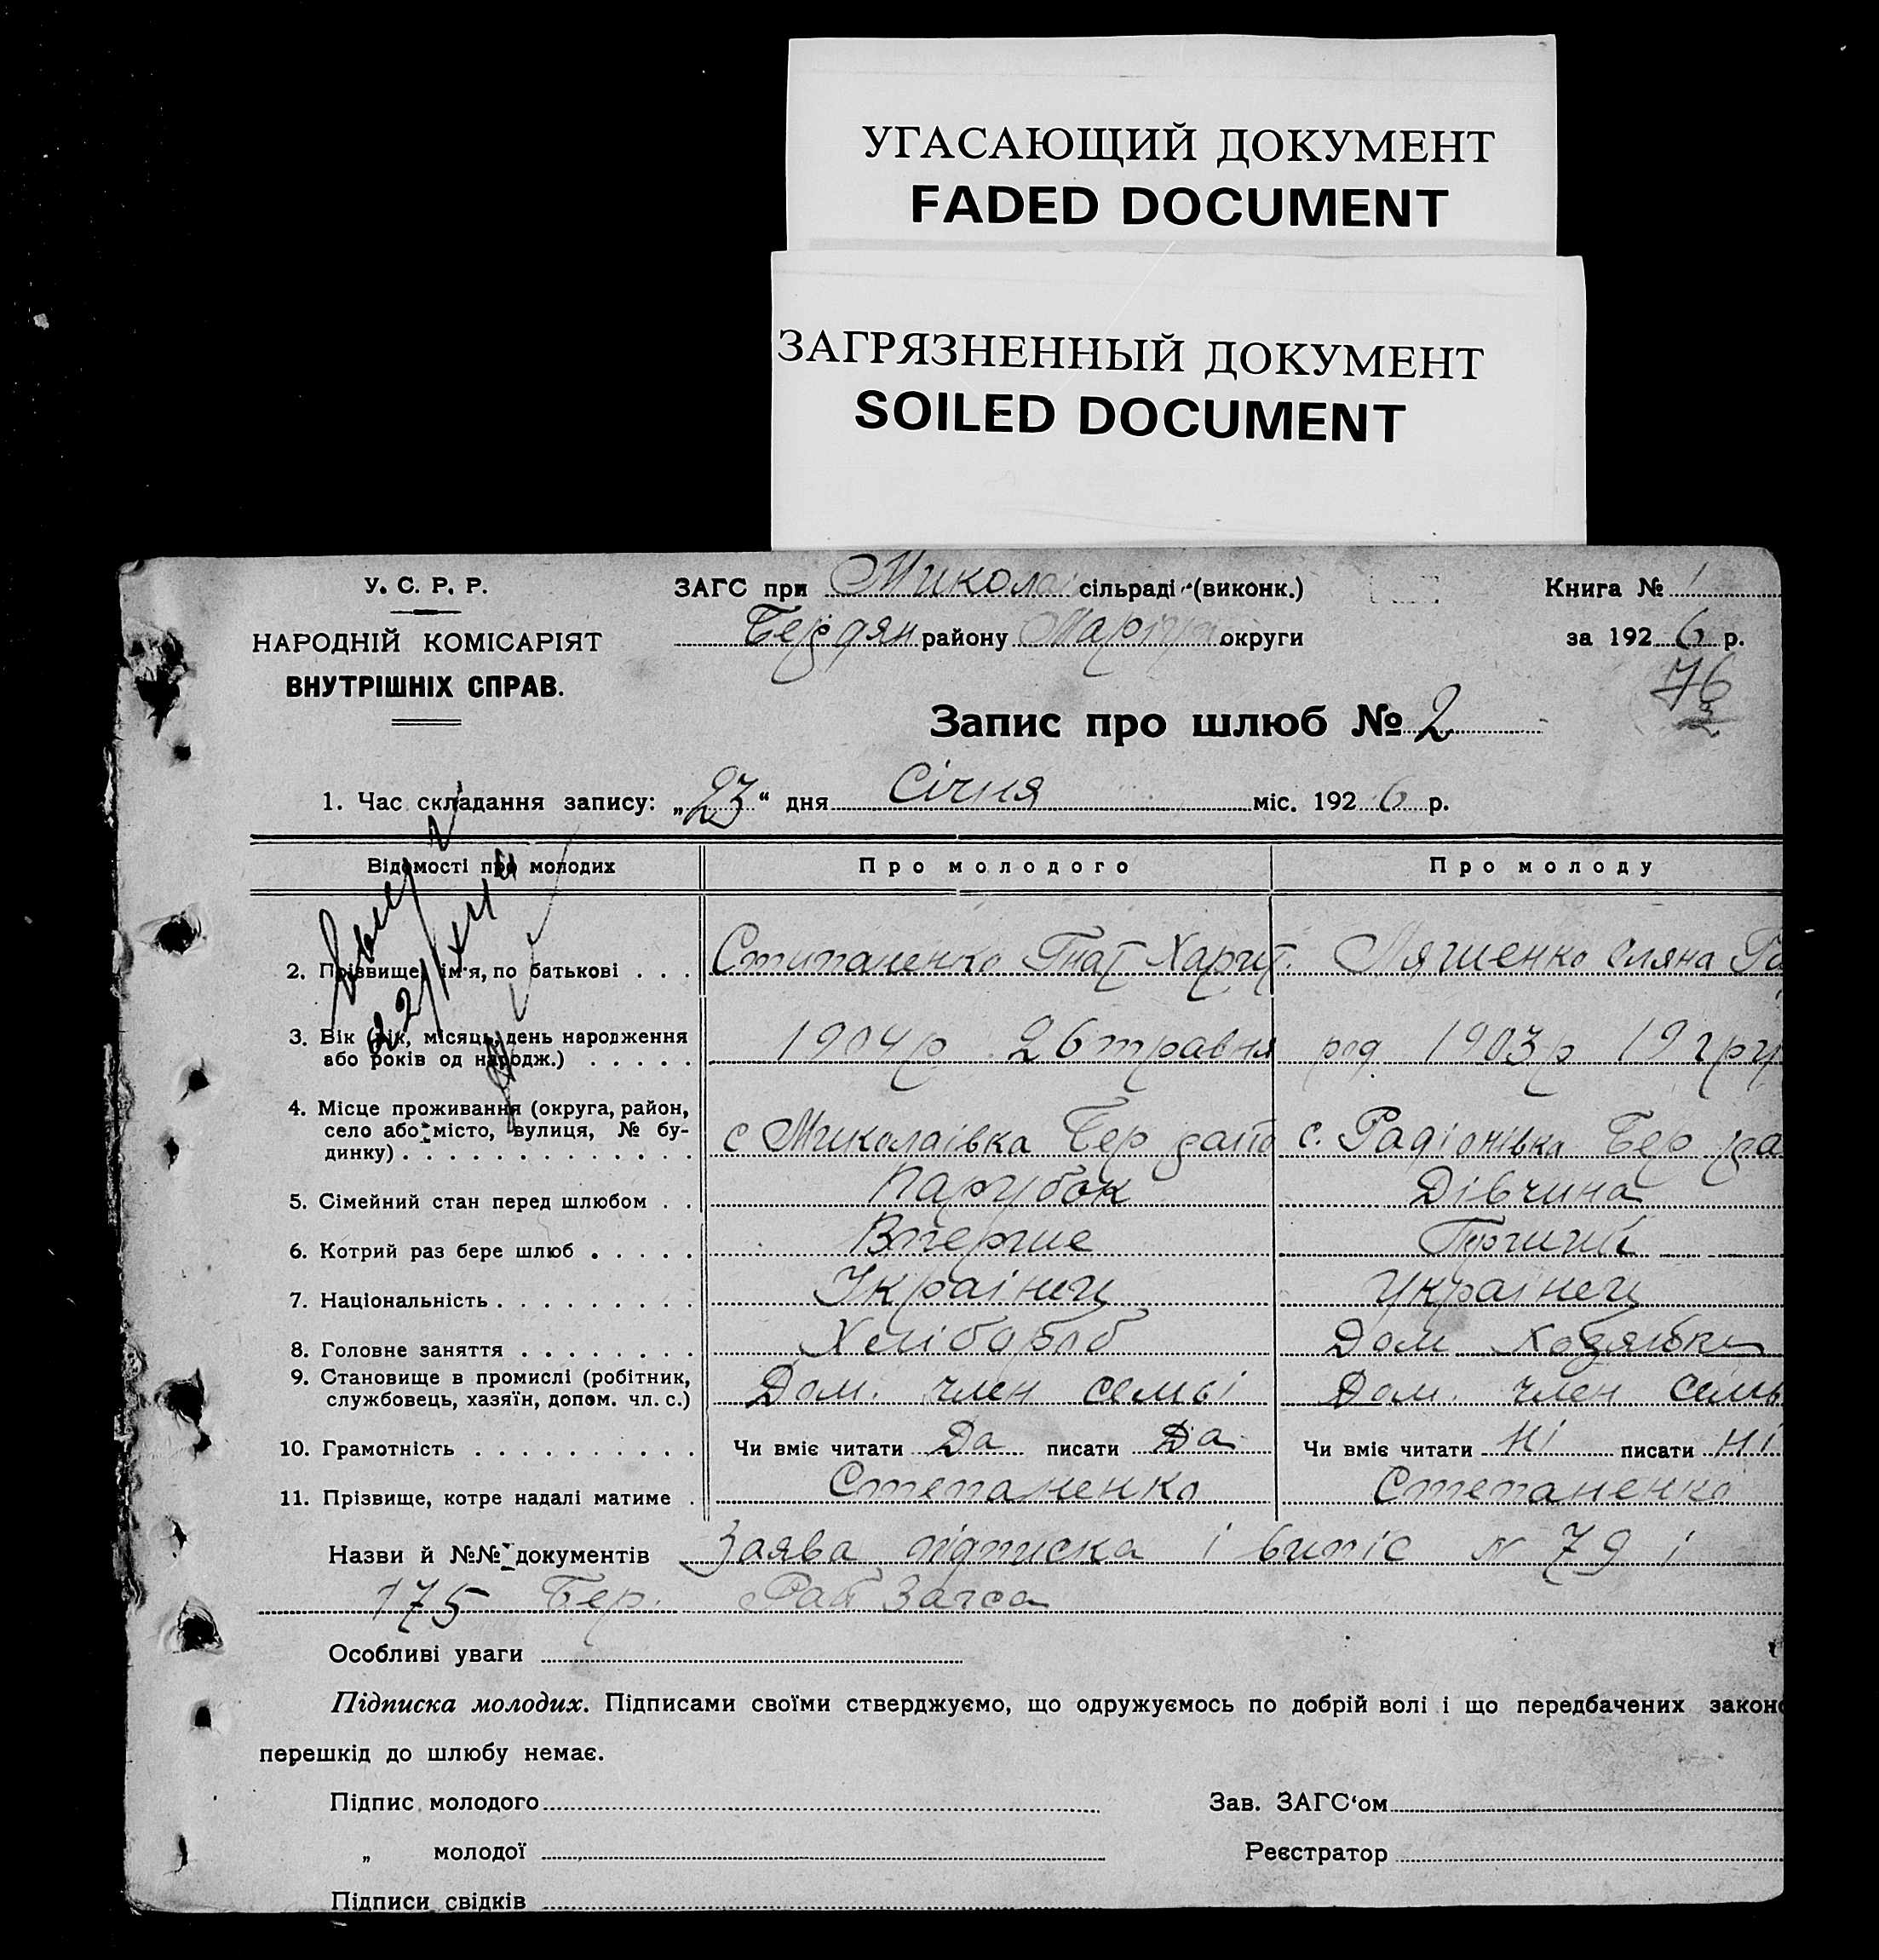 УГАСАЮЩИЙ ДОКУМЕНТ
FADED DOCUMENT
ЗАГРЯЗНЕННЫЙ ДОКУМЕНТ
SOILED DOCUMENT
У. С. Р. Р.
НАРОДНІЙ КОМІСАРІЯТ
ВНУТРІШНІХ СПРАВ.
ЗАГС при Микола сільраді (виконк.)
Бердян району Маріуп округи
Книга № 1
за 1926 р.
76
Запис про шлюб № 2
1. Час складання запису: „23“ дня Січня міс. 1926 р.
Відомості про молодих Про молодого Про молоду
2. Прізвище, ім'я, по батькові . . . Стипаненко Гнат Харит. Ляшенко Оляна
3. Вік (рік, місяць, день народження
або років од народж.) . . . . . 1904 р 26 травня род 1903 р 19 гру
4. Місце проживання (округа, район,
село або місто, вулиця, № бу-
динку) . . . . . . . . . . . . . с Миколаівка Бер райо с. Радіонівка Бер ра
5. Сімейний стан перед шлюбом . . Парубок Дівчина
6. Котрий раз бере шлюб . . . . . Вперше
7. Національність . . . . . . . . . Українец Українец
8. Головне заняття . . . . . . . . Хлібороб Дом хозяйка
9. Становище в промислі (робітник,
службовець, хазяїн, допом. чл. с.) Дом. член семьі Дом. член семь
10. Грамотність . . . . . . . . . . Чи вміє читати Да писати Да Чи вміє читати Ні писати Ні
11. Прізвище, котре надалі матиме . Степаненко Степаненко
Назви й №№ документів Заява підписка і випіс N 79 і
175 Бер. Загса
Особливі уваги
Підписка молодих. Підписами своїми стверджуємо, що одружуємось по добрій волі і що передбачених законо
перешкід до шлюбу немає.
Підпис молодого Зав. ЗАГС‘ом
„ молодої Реєстратор
Підписи свідків